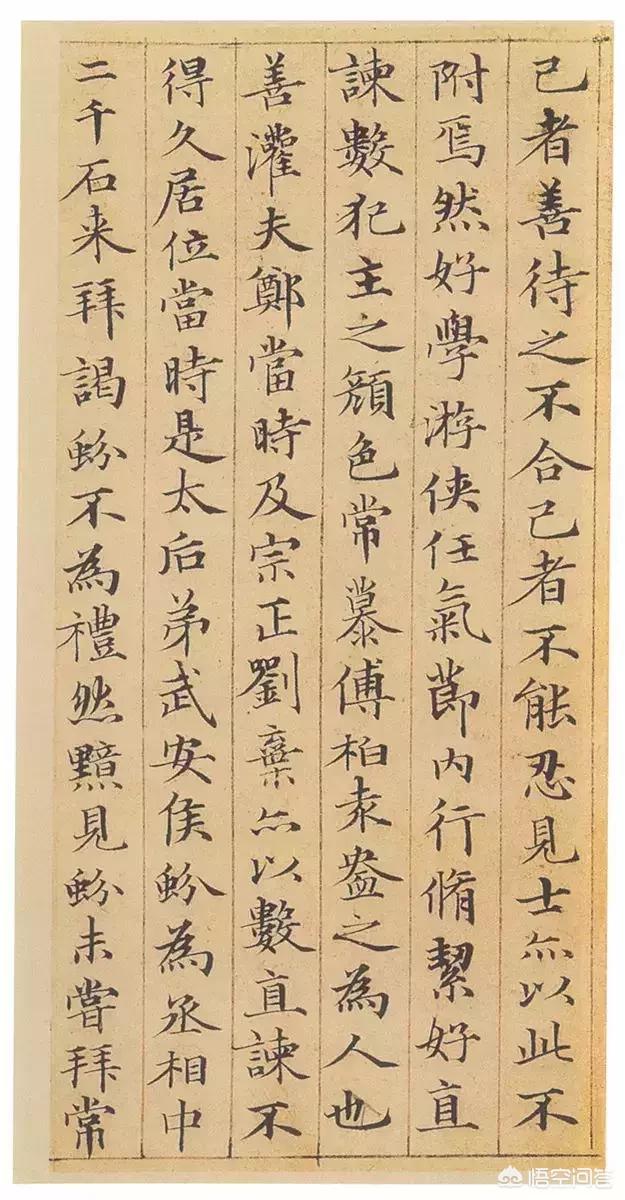 己者善待之不合己者不能忍見士亦以此不
附焉然好學游俠任氣節內行脩絜好直
諫數犯主之顏色常慕傅柏袁盎之為人也
善灌夫鄭當時及宗正劉棄亦以數直諫不
得久居位當時是太后弟武安侯蚡為丞相中
二千石来拜謁蚡不為禮然黯見蚡未嘗拜常
悟空问答